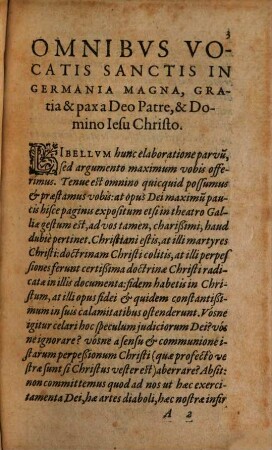 3
OMNIBVS VO-
CATIS SANCTIS IN
GERMANIA MAGNA, GRA-
tia & pax a Deo Patre, & Do-
mino Iesu Christo.
LIBELLVM hunc elaboratione parvũ,
sed argumento maximum vobis offe-
rimus. Tenue est omnino quicquid possumus
& præstamus vobis: at opus Dei maximũ pau-
cis hisce paginis expositum etsi in theatro Gal-
liæ gestum est, ad vos tamen, charissimi, haud
dubie pertinet. Christiani estis, at illi martyres
Christi: doctrinam Christi colitis, at illi perpes-
siones ferunt certissima doctrinæ Christi radi-
catæ in illis documenta: fidem habetis in Chri-
stum, at illi opus fidei & quidem constantissi-
mum in suis calamitatibus ostenderunt. Vósne
igitur celari hoc speculum judiciorum Dei? vós
ne ignorare? vósne a sensu & communione i-
starum perpessionum Christi (quæ profecto ve
stræ sunt si Christus vester est) aberrare? Absit:
non committemus quod ad nos ut hæc exerci-
tamenta Dei, hæ artes diaboli, hæc nostræ infir
A 2